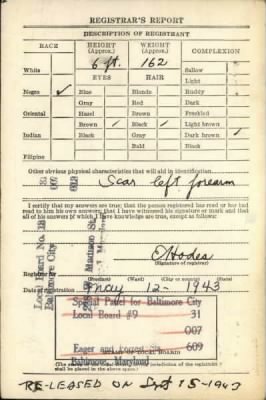 REGISTRAR'S REPORT
DESCRIPTION OF REGISTRANT
RACE HEIGHT (Approx.) WEIGHT (Approx.) COMPLEXION
6 ft. 162
White Sallow
EYES HAIR Light
Negro ✓ Blue Blonde Ruddy
Gray Red Dark
Oriental Hazel Brown Freckled
Brown ✓ Black ✓ Light brown
Indian Black Gray Dark brown ✓
Bald Black
Filipino
Other obvious physical characteristics that will aid in identification
Scar left forearm
I certify that my answers are true; that the person registered has read or has had
read to him his own answers; that I have witnessed his signature or mark and that
all of his answers of which I have knowledge are true, except as follows:
Local Board No.
Baltimore City
Madison St.
(Signature of registrar)
Registrar for
(Precinct) (Ward) (City or county) (State)
Date of registration May 12 - 1943
Special Panel for Baltimore City
Local Board #9 31
007
Eager and Forrest Sts. 609
Baltimore, Maryland
(STAMP OF LOCAL BOARD)
shall be placed in the above space.)
RE-LEASED ON Sept 15-1943